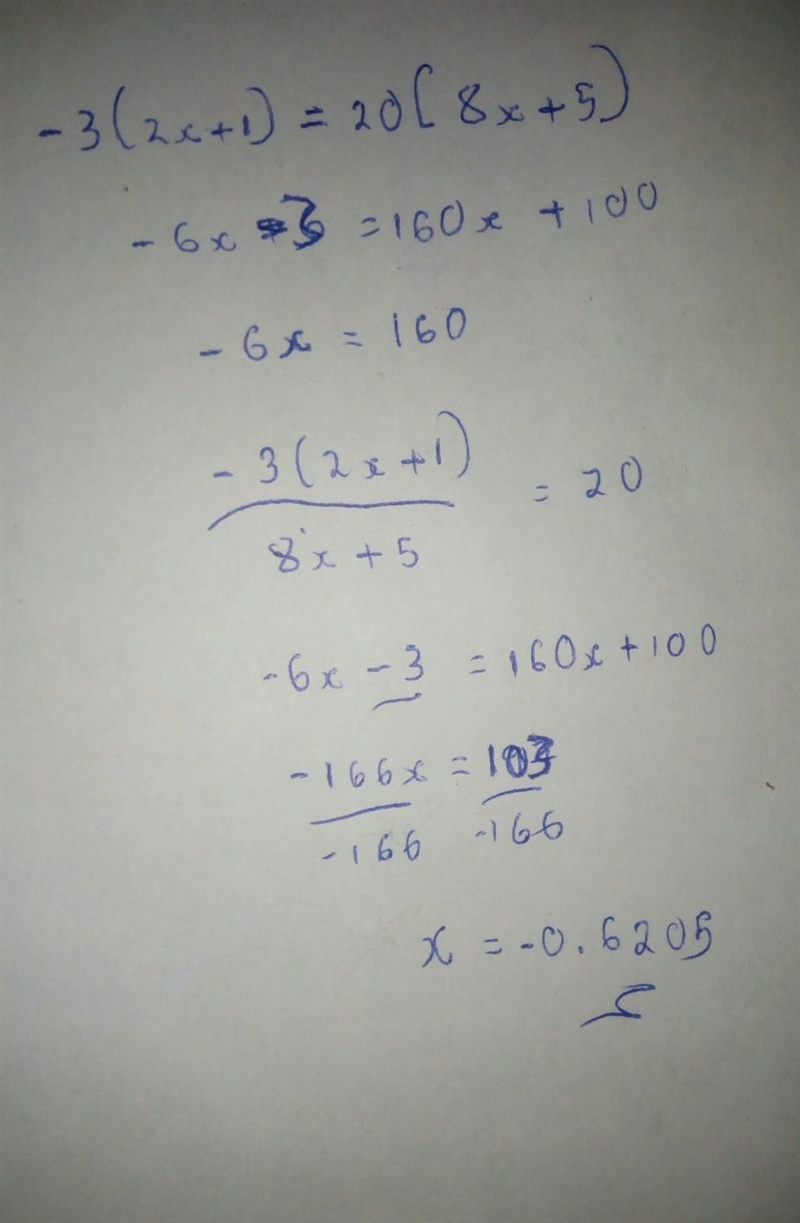 -3(2x+1) = 20(8x+5)
-6x -3 = 160x +100
-6x = 160
-3(2x+1)
= 20
8x + 5
-6x -3 = 160x+100
-166x = 103
-166 -166
x = -0.6205